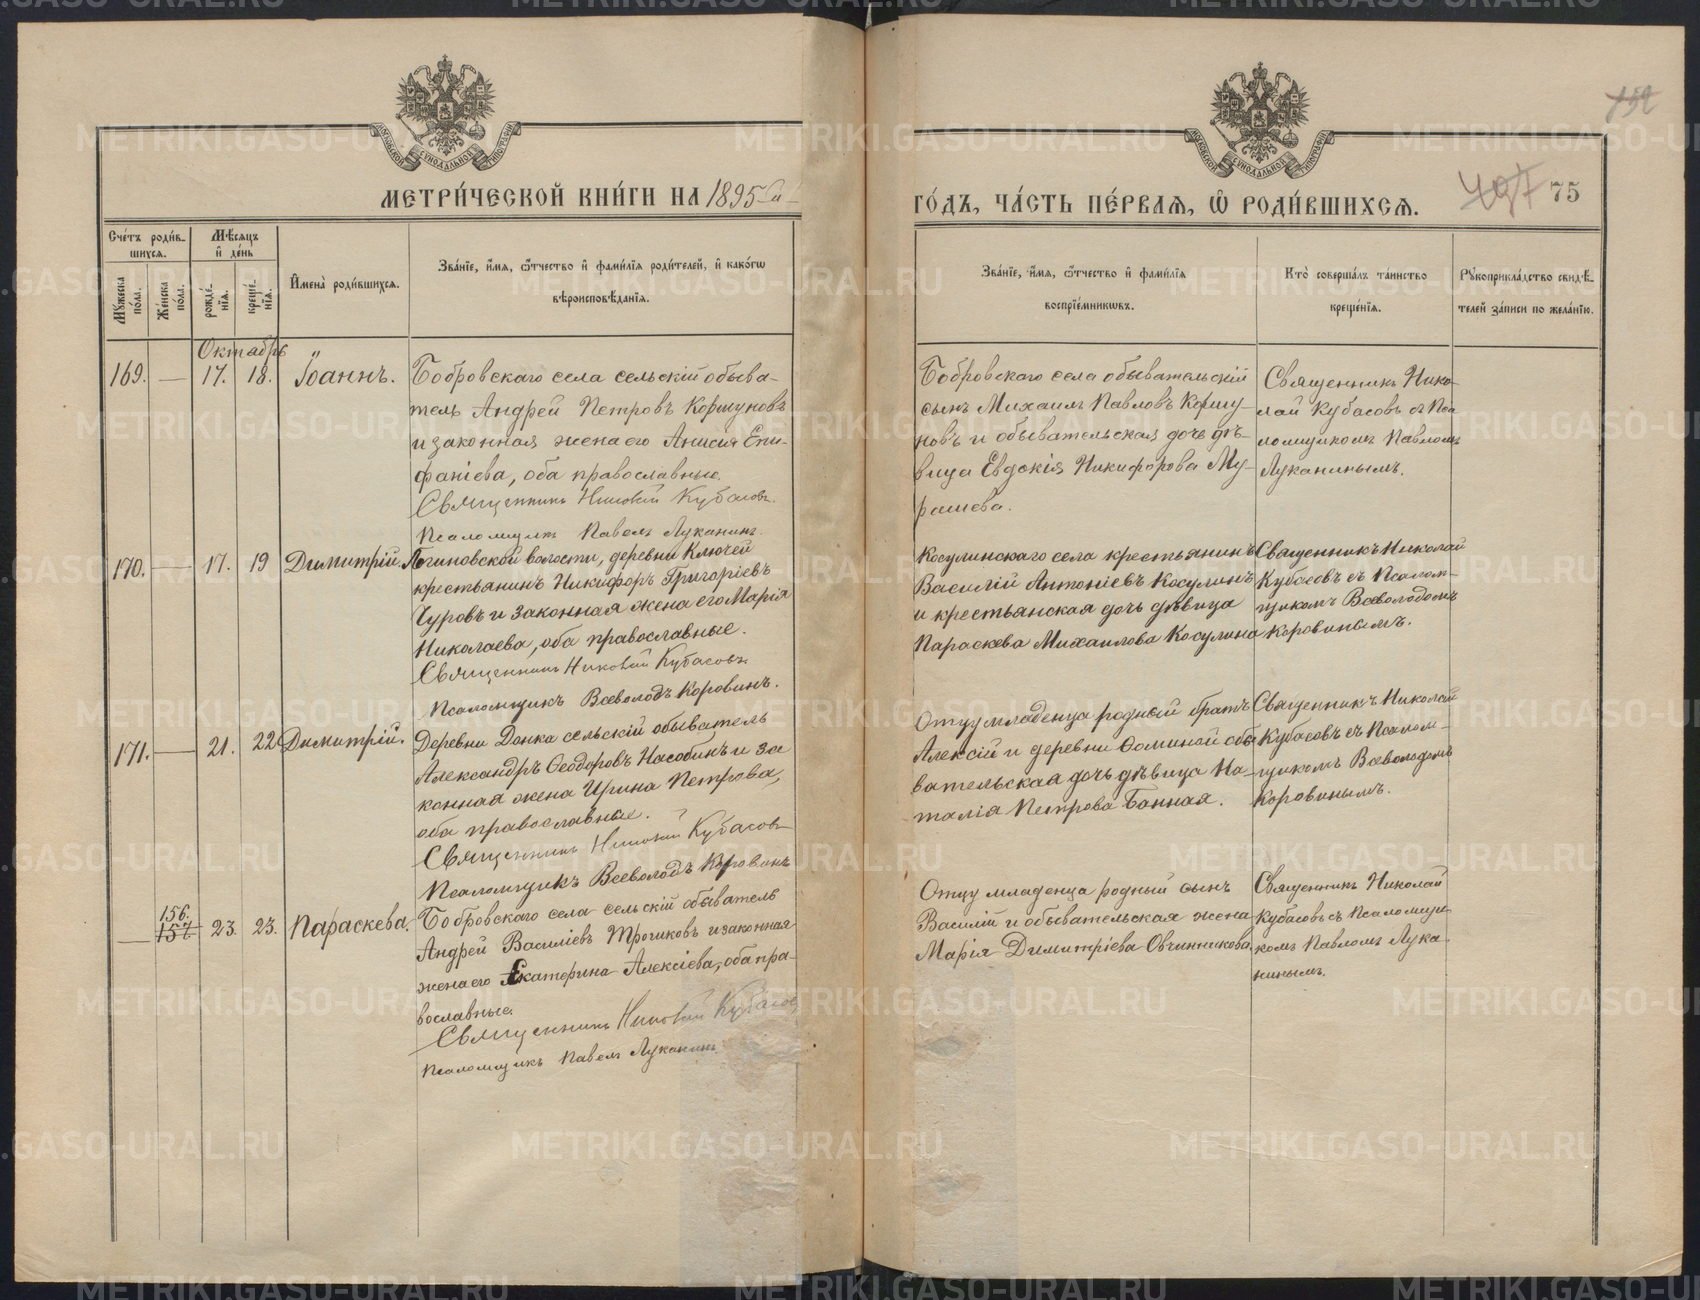 МЕТРИ́ЧЕСКОЙ КНИ́ГИ НА 1895-й
ГО́ДЪ, ЧА́СТЬ ПЕ́РВАѦ, Ѽ РОДИ́ВШИХСѦ.
75
МОСКОВСКОЙ СѴНОДАЛЬНОЙ ТИПОГРАФІИ
МОСКОВСКОЙ СѴНОДАЛЬНОЙ ТИПОГРАФІИ
Сче́тъ роди́в-
шихся.
Мѣсяцъ
и҆ де́нь
Мꙋ́жеска по́ла.
Же́нска по́ла.
рожде́нїя.
креще́нїя.
И҆мена̀ роди́вшихся.
Зва́нїе, и҆́мя, ѻ҆́тчество и҆ фами́лїя роди́телей, и҆ како́гѡ
вѣроисповѣ́данїя.
Зва́нїе, и҆́мя, ѻ҆́тчество и҆ фами́лїя
воспрїе́мникѡвъ.
Кто̀ соверша́лъ та́инство
креще́нїя.
Рꙋкоприкла́дство свидѣ́-
телей за́писи по жела́нїю.
Октябрь
169. — 17. 18. Іоаннъ.
Бобровскаго села сельскій обыва-
тель Андрей Петровъ Коршуновъ
и законная жена его Анисия Епи-
фаніева, оба православные.
Священникъ Николай Кубасовъ.
Псаломщикъ Павелъ Луканинъ.
Бобровскаго села обывательскій
сынъ Михаилъ Павловъ Коршу-
новъ и обывательская дочь дѣ-
вица Евдокія Никифорова Му-
рашева.
Священникъ Нико-
лай Кубасовъ съ Пса
ломщикомъ Павломъ
Луканинымъ.
170. — 17. 19 Димитрій.
Логиновской волости, деревни Ключей
крестьянинъ Никифоръ Григоріевъ
Чуровъ и законная жена его Марія
Николаева, оба православные.
Священникъ Николай Кубасовъ
Псаломщикъ Всеволодъ Коровинъ.
Косулинскаго села крестьянинъ
Василій Антоніевъ Косулинъ
и крестьянская дочь дѣвица
Параскева Михаилова Косулина
Священникъ Николай
Кубасовъ съ Псалом-
щикомъ Всеволодомъ
Коровинымъ.
171. — 21. 22 Димитрій.
Деревни Донка сельскій обыватель
Александръ Ѳеодоровъ Насобинъ и за
конная жена Ирина Петрова,
оба православные.
Священникъ Николай Кубасовъ
Псаломщикъ Всеволодъ Коровинъ
Отцу младенца родный братъ
Алексій и деревни Ѳоминой обы
вательская дочь дѣвица На-
талія Петрова Банная.
Священникъ Николай
Кубасовъ съ Псалом-
щикомъ Всеволодомъ
Коровинымъ.
— 156. 157. 23. 23. Параскева.
Бобровскаго села сельскій обыватель
Андрей Василіевъ Трониковъ и законная
жена его Екатерина Алексіева, оба пра-
вославные.
Священникъ Николай Кубасов
Псаломщикъ Павелъ Луканинъ
Отцу младенца родный сынъ
Василій и обывательская жена
Марія Димитріева Овчинникова.
Священникъ Николай
Кубасовъ съ Псаломщи-
комъ Павломъ Лука-
нинымъ.
METRIKI.GASO-URAL.RU